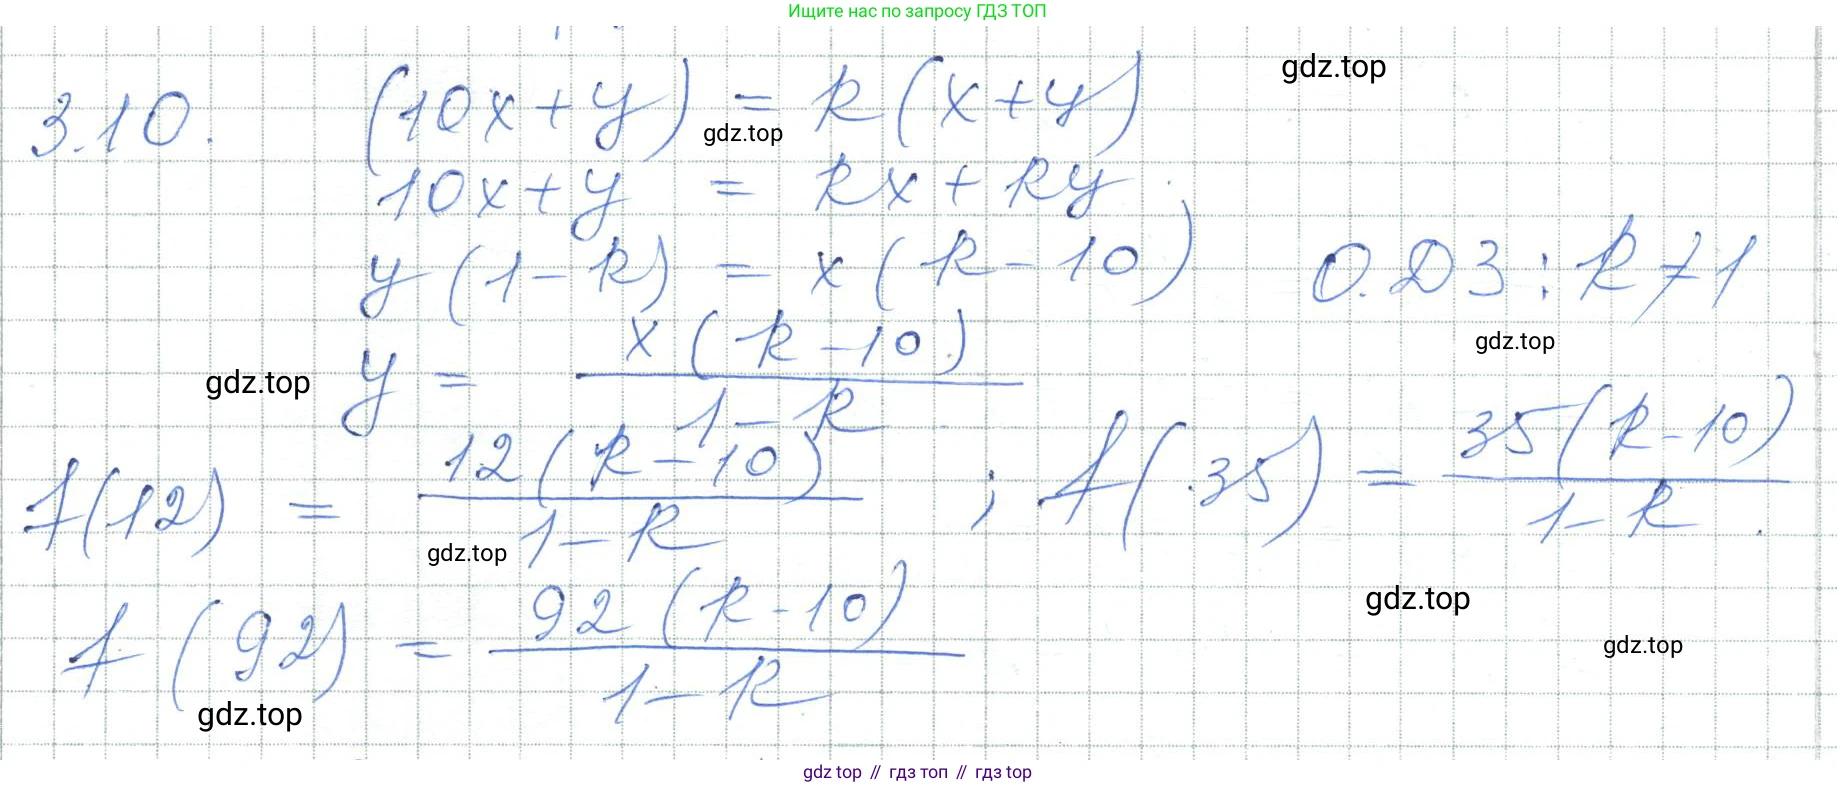 Ищите нас по запросу ГДЗ ТОП
gdz.top
3.10. (10x + y) = k(x+y)
gdz.top
10x + y = kx + ky
y(1-k) = x(k-10) О.ДЗ: k≠1
gdz.top
y = x(k-10) / 1-k
gdz.top
f(12) = 12(k-10) / 1-k ; f(35) = 35(k-10) / 1-k.
gdz.top
f(92) = 92(k-10) / 1-k
gdz.top
gdz.top
gdz.top
gdz top // гдз топ // гдз top